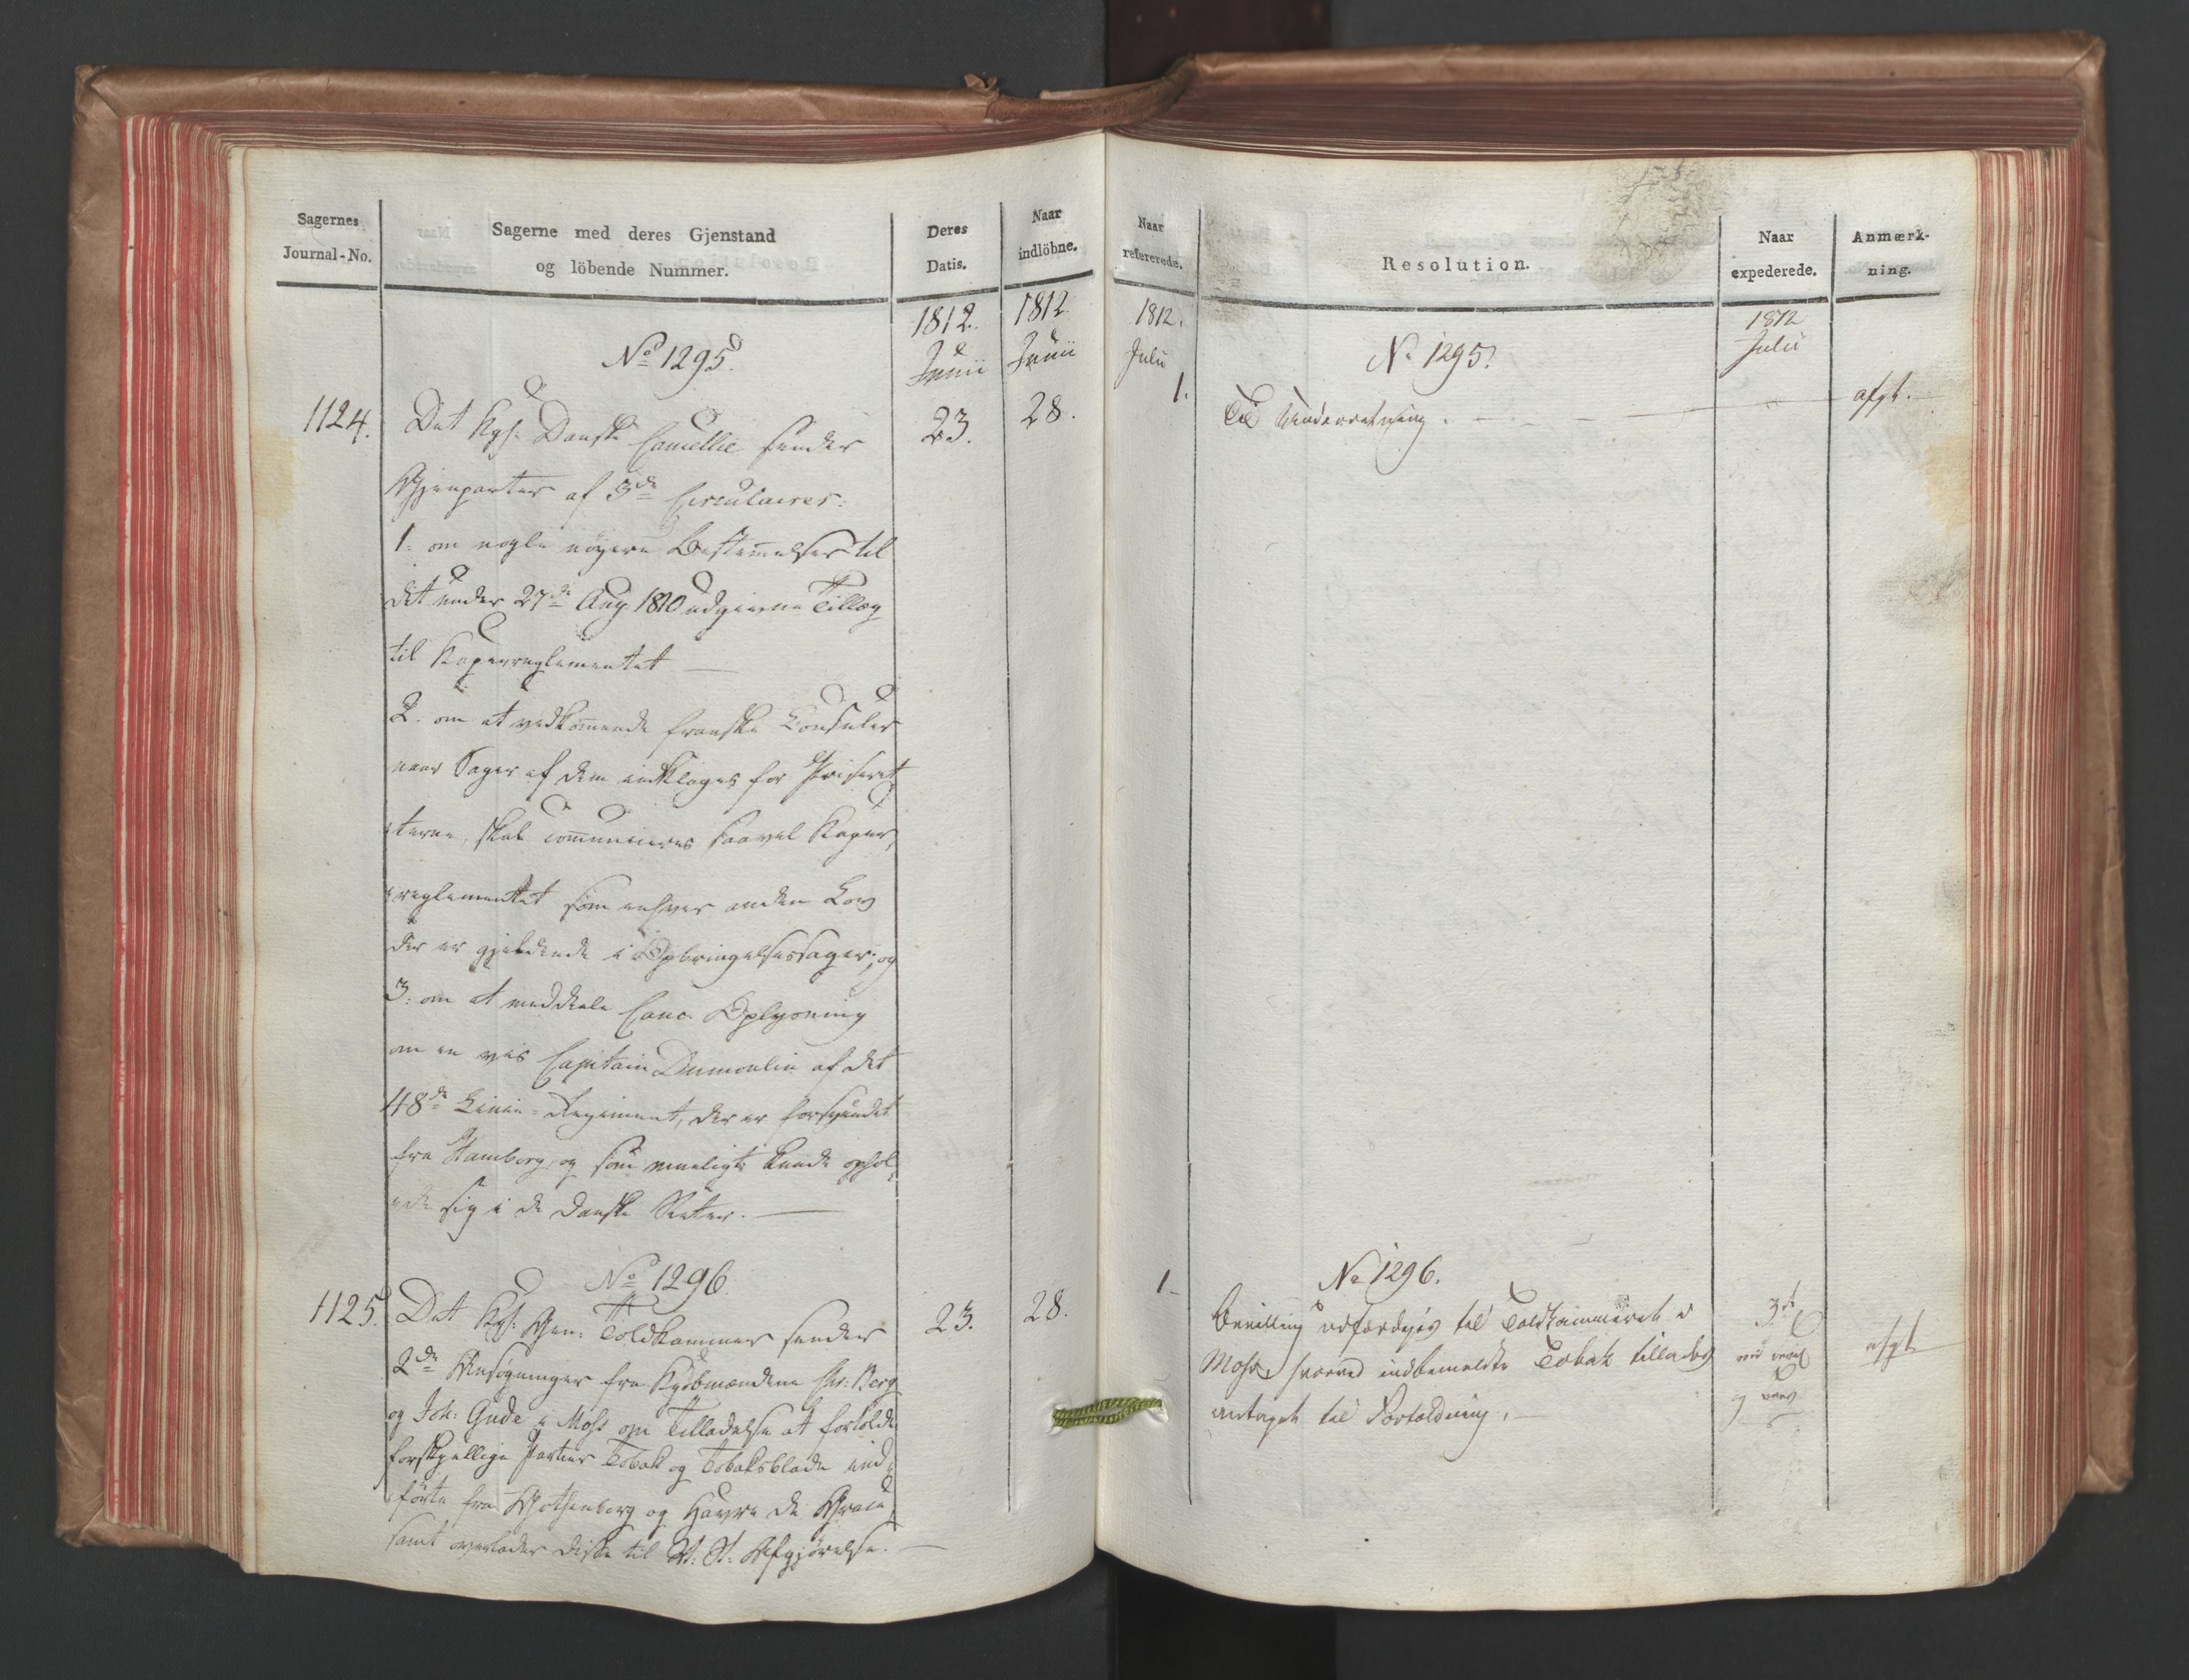 Sagernes
Journal-No.
Sagerne med deres Gjenstand
og löbende Nummer.
Deres
Datis.
Naar
indlöbne.
1812.
Junii
1812.
Junii
No 1295.
1124.
Det Kgl: Danske Cancellie sender
23.
28.
Gjenparter af 3de Circulairer:
1. om nogle nöyere Bestem̅elser til
det under 27de Aug 1810 udgivne Tillæg
til Kaperreglementet —
2. om at vedkom̅ende franske Consuler
naar Sager af dem indklages for Priseret
terne, skal com̅uniceres saavel Kaper,
reglementet som enhver anden Lov
der er gjeldende i Opbringelsessager; og
3. om at meddele Canc. Oplysning
om en vis Capitain Dumoulin af det
48de Linie-Regiment, der er forsvundet
fra Hamborg, og som mueligt kunde ophol,
de sig i de danske Stater. —
No 1296.
1125.
Det Kgl: Gen: Toldkammer sender
23.
28.
2de Ansøgninger fra Kjöbmændene Chr: Berg
og Joh: Gude i Moss om Tilladelse at fortolde
forskjellige Partier Tobak og Tobaksblade ind,
förte fra Gothenborg og Havre de Grace
samt overlader disse til R: C: Afgjörelse. —
Naar
refererede.
Resolution.
Naar
expederede.
Anmærk-
ning.
1812.
Julii
1812
Julii
No 1295.
1.
Til Underretning. —
afgt.
No 1296.
1.
Bevilling udfærdiges til Toldkammeret i
Moss, hvorved indbemeldte Tobak tillades
antaget til Fortoldning. —
3de
og
afgt